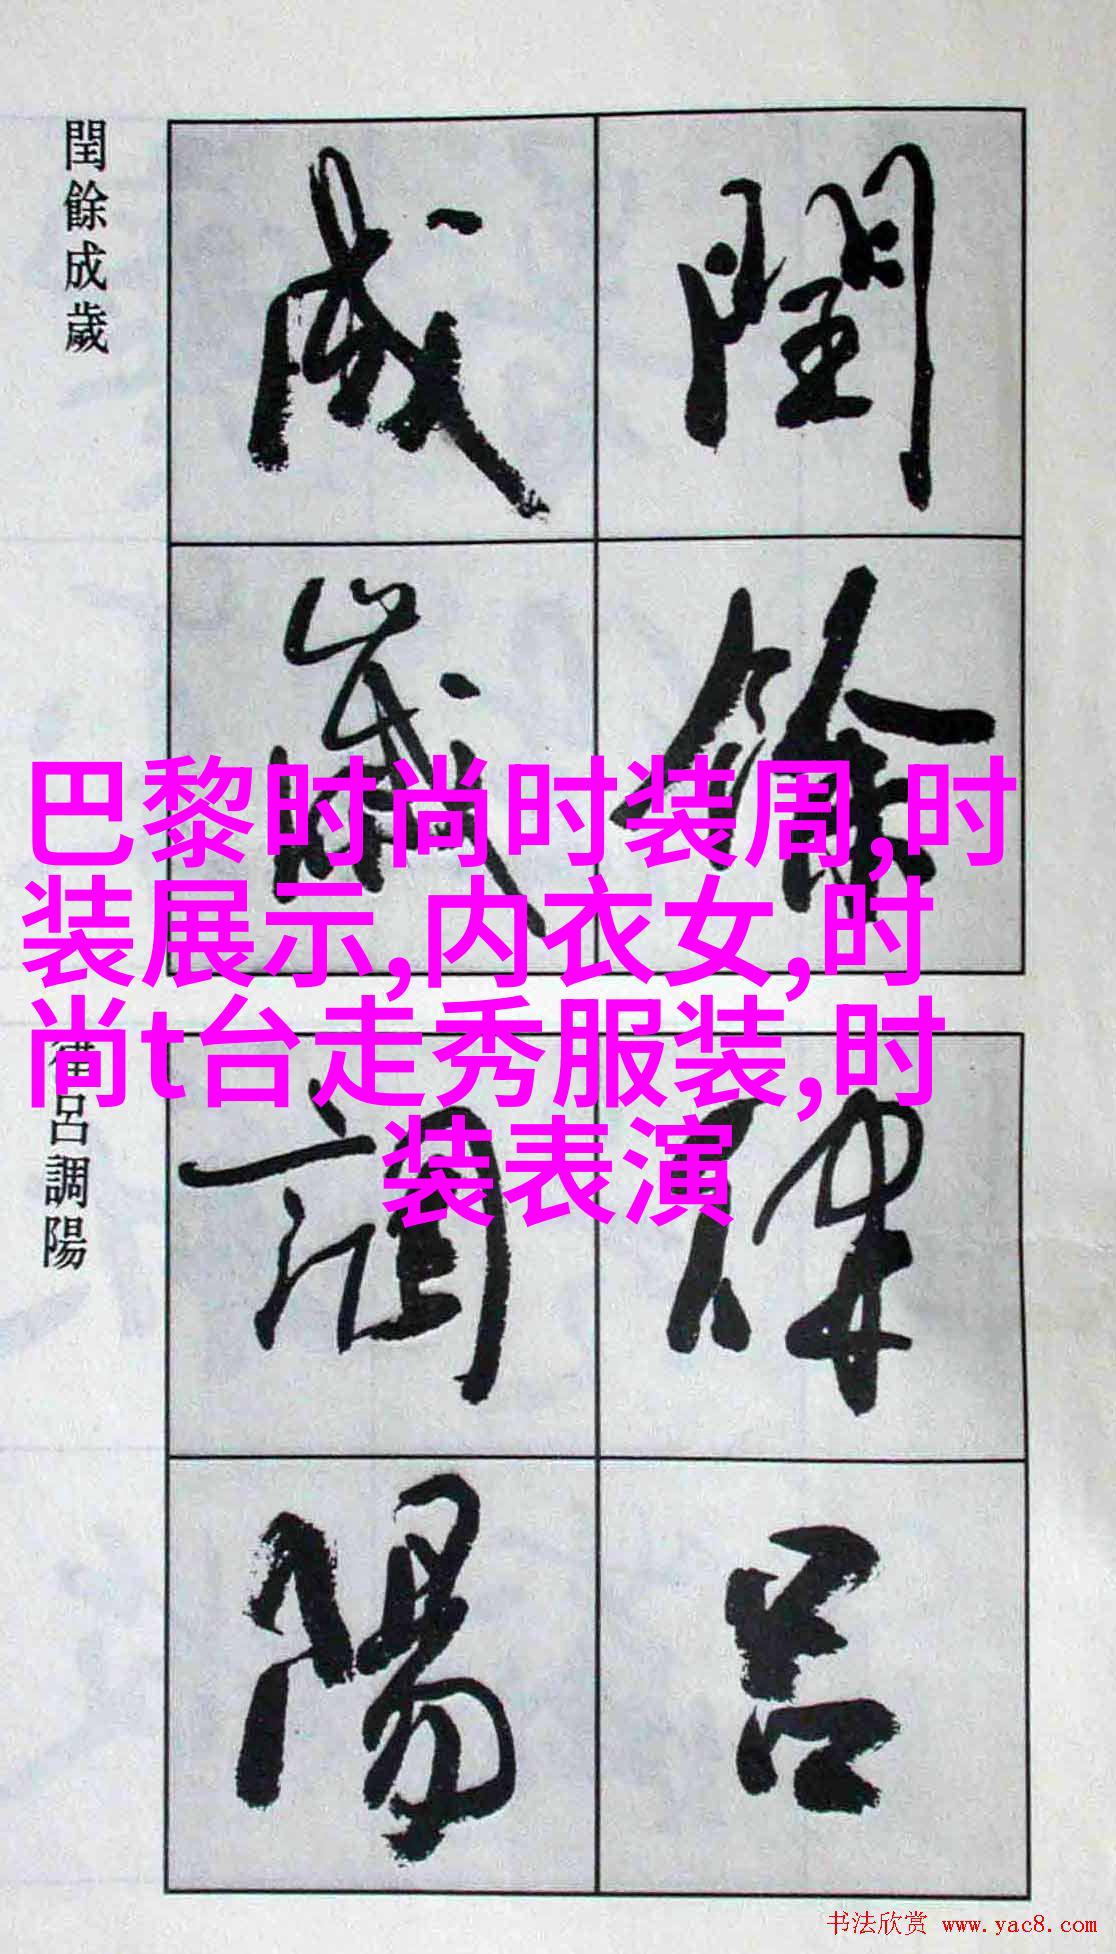 閏餘
成歲
閏餘成歲
巴黎时尚时装周,时
装展示,内衣女,时
尚t台走秀服装,时
装表演
律呂
調陽
呂調陽
书法欣赏 www.yac8.com